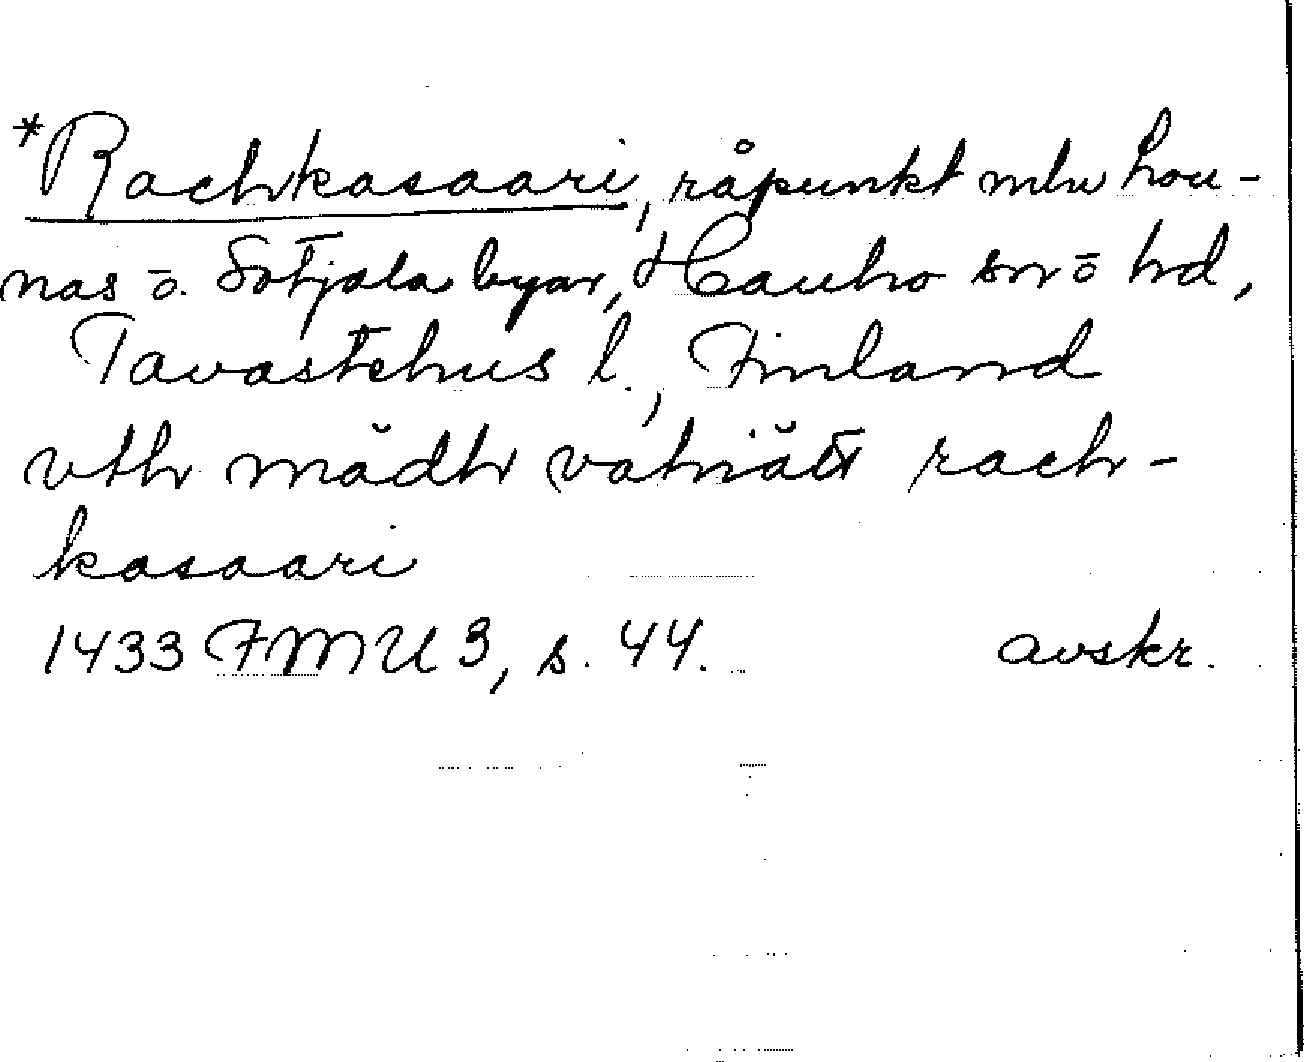 *Rachkasaari, råpunkt mlw Lou-
nas o. Sotjala byar, Hauho sn o hd,
Tavastehus l., Finland
vthr mädhr vatnätt rach-
kasaari
1433 FMU 3, s. 44. avskr.